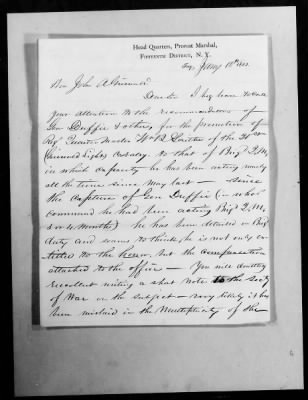 Head Quarters, Provost Marshal,
Fifteenth District, N. Y.
Troy, 12th 186
Hon John A Griswold
Dear Sir I beg leave to call
your attention to the recommendations of
Gen Duffie & others, for the promotion of
Regt Quarter Master of the 21st
(Griswold Light) Cavalry to that of Brig Q.M.
in which capacity he has been acting nearly
all the time since May last — since
the Capture of Gen Duffie (in whose
command he had been acting Brig Q.M.
5 or 6 months) he has been detailed on Brig
duty and seems to think he is not only en-
titled to the honor, but the compensation
attached to the office — You will doubtless
recollect writing a short note to the Secty
of War on the subject — very likely it has
been mislaid in the multiplicity of the